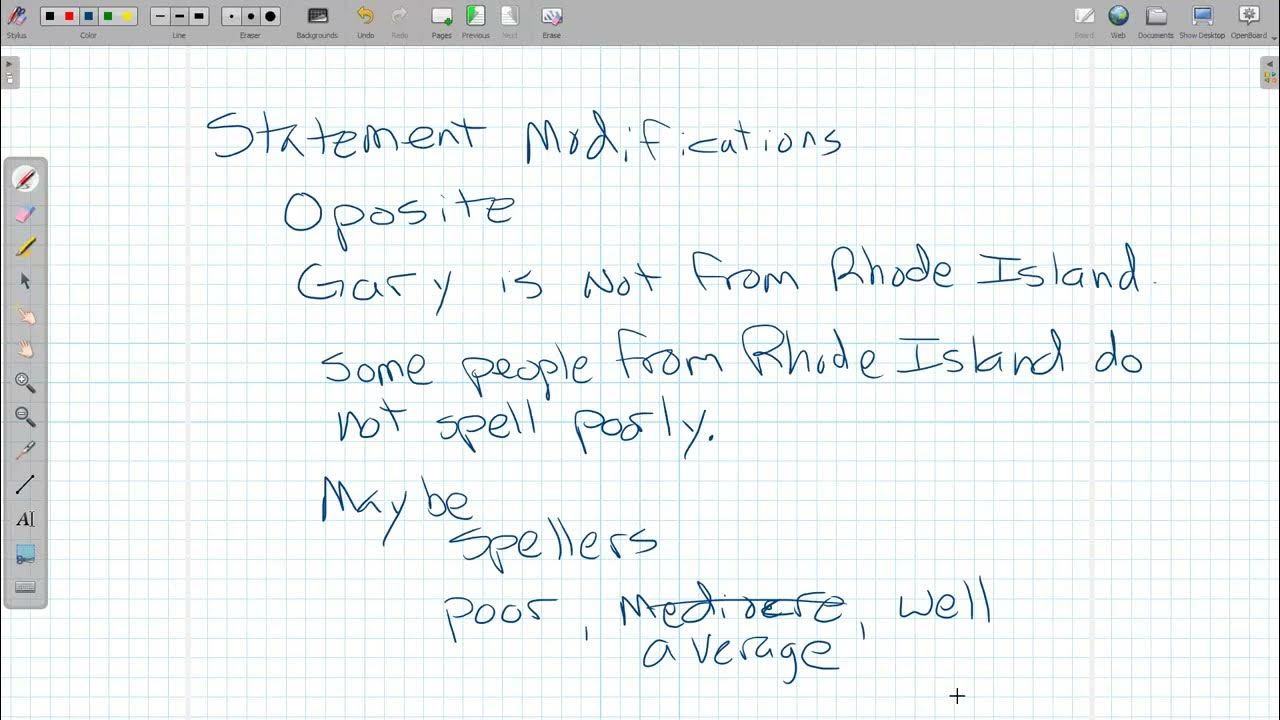 Stylus Color Line Eraser Backgrounds Undo Redo Pages Previous Next Erase Board Web Documents Show Desktop OpenBoard
Statement Modifications
Oposite
Gary is not from Rhode Island.
some people from Rhode Island do
not spell poorly.
Maybe
spellers
poor, Mediocre, well
average
AI